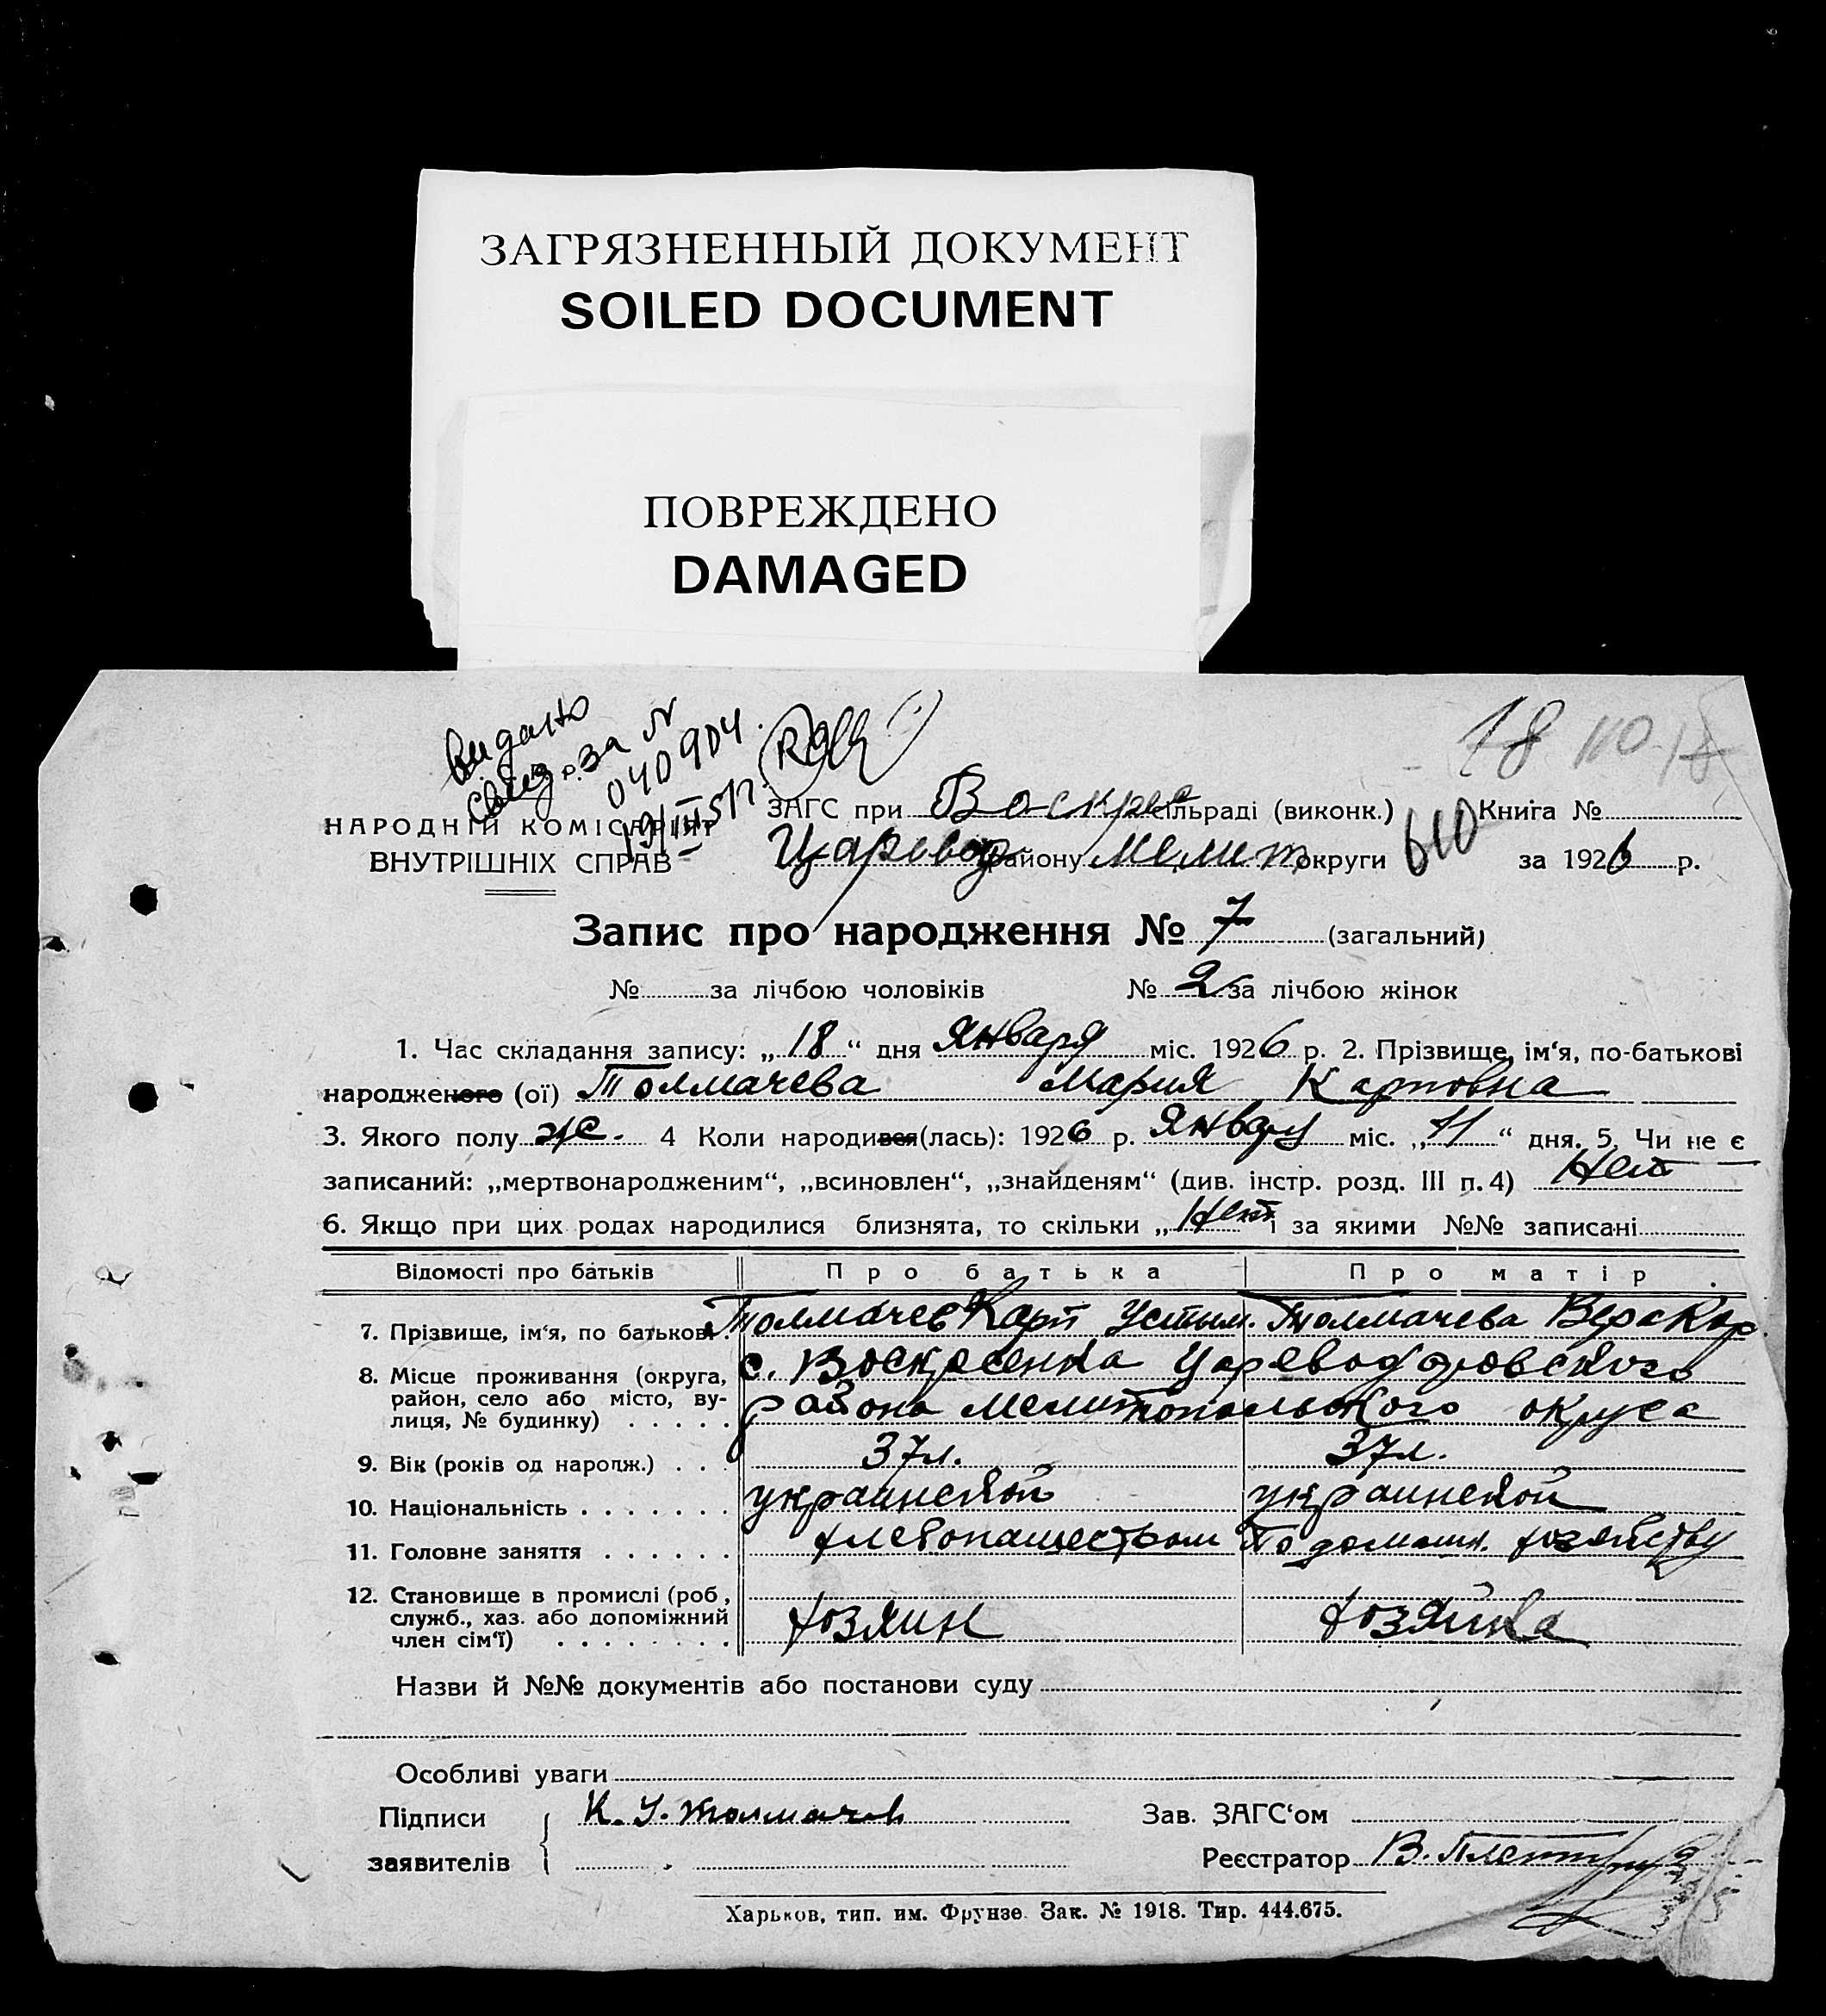 ЗАГРЯЗНЕННЫЙ ДОКУМЕНТ
SOILED DOCUMENT
ПОВРЕЖДЕНО
DAMAGED
Видано
свид. за №
040904.
18 110-18
НАРОДНІЙ КОМІСАРІЯТ
ВНУТРІШНІХ СПРАВ
ЗАГС при Воскрес сільраді (виконк.) 610 Книга №
Царевод району Мелит округи за 1926 р.
Запис про народження № 7 (загальний)
№ за лічбою чоловіків № 2 за лічбою жінок
1. Час складання запису: „18“ дня Января міс. 1926 р. 2. Прізвище, ім‘я, по-батькові
народженого (ої) Толмачева Мария Карповна
3. Якого полу ж. 4 Коли народився(лась): 1926 р. Январу міс. „11“ дня. 5. Чи не є
записаний: „мертвонародженим“, „всиновлен“, „знайденям“ (див. інстр. розд. III п. 4) Нет
6. Якщо при цих родах народилися близнята, то скільки „Нет і за якими №№ записані
Відомості про батьків Про батька Про матір
7. Прізвище, ім‘я, по батькові. Толмачев Карп Устим. Толмачева Вера Кар
8. Місце проживання (округа, район, село або місто, вулиця, № будинку) с. Воскресенка Цареводаровского
района Мелитопольского округа
9. Вік (років од народж.) 37л. 37л.
10. Національність украинской украинской
11. Головне заняття хлебопашеством По домашн. хозяйству
12. Становище в промислі (роб, служб., хаз. або допоміжний член сім‘ї) хозяин хозяйка
Назви й №№ документів або постанови суду
Особливі уваги
Підписи заявителів К. У. Толмачев
Зав. ЗАГС‘ом
Реєстратор В.
Харьков, тип. им. Фрунзе. Зак. № 1918. Тир. 444.675.